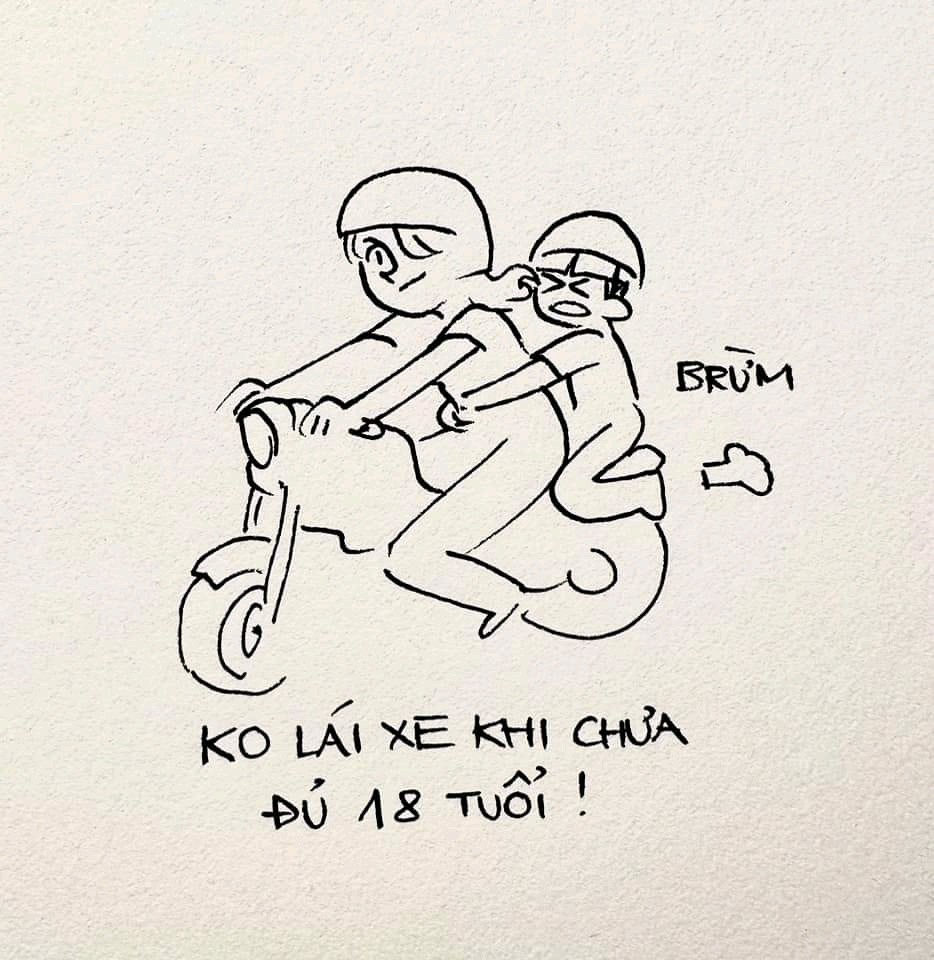 BRỪM
KO LÁI XE KHI CHƯA
ĐỦ 18 TUỔI !